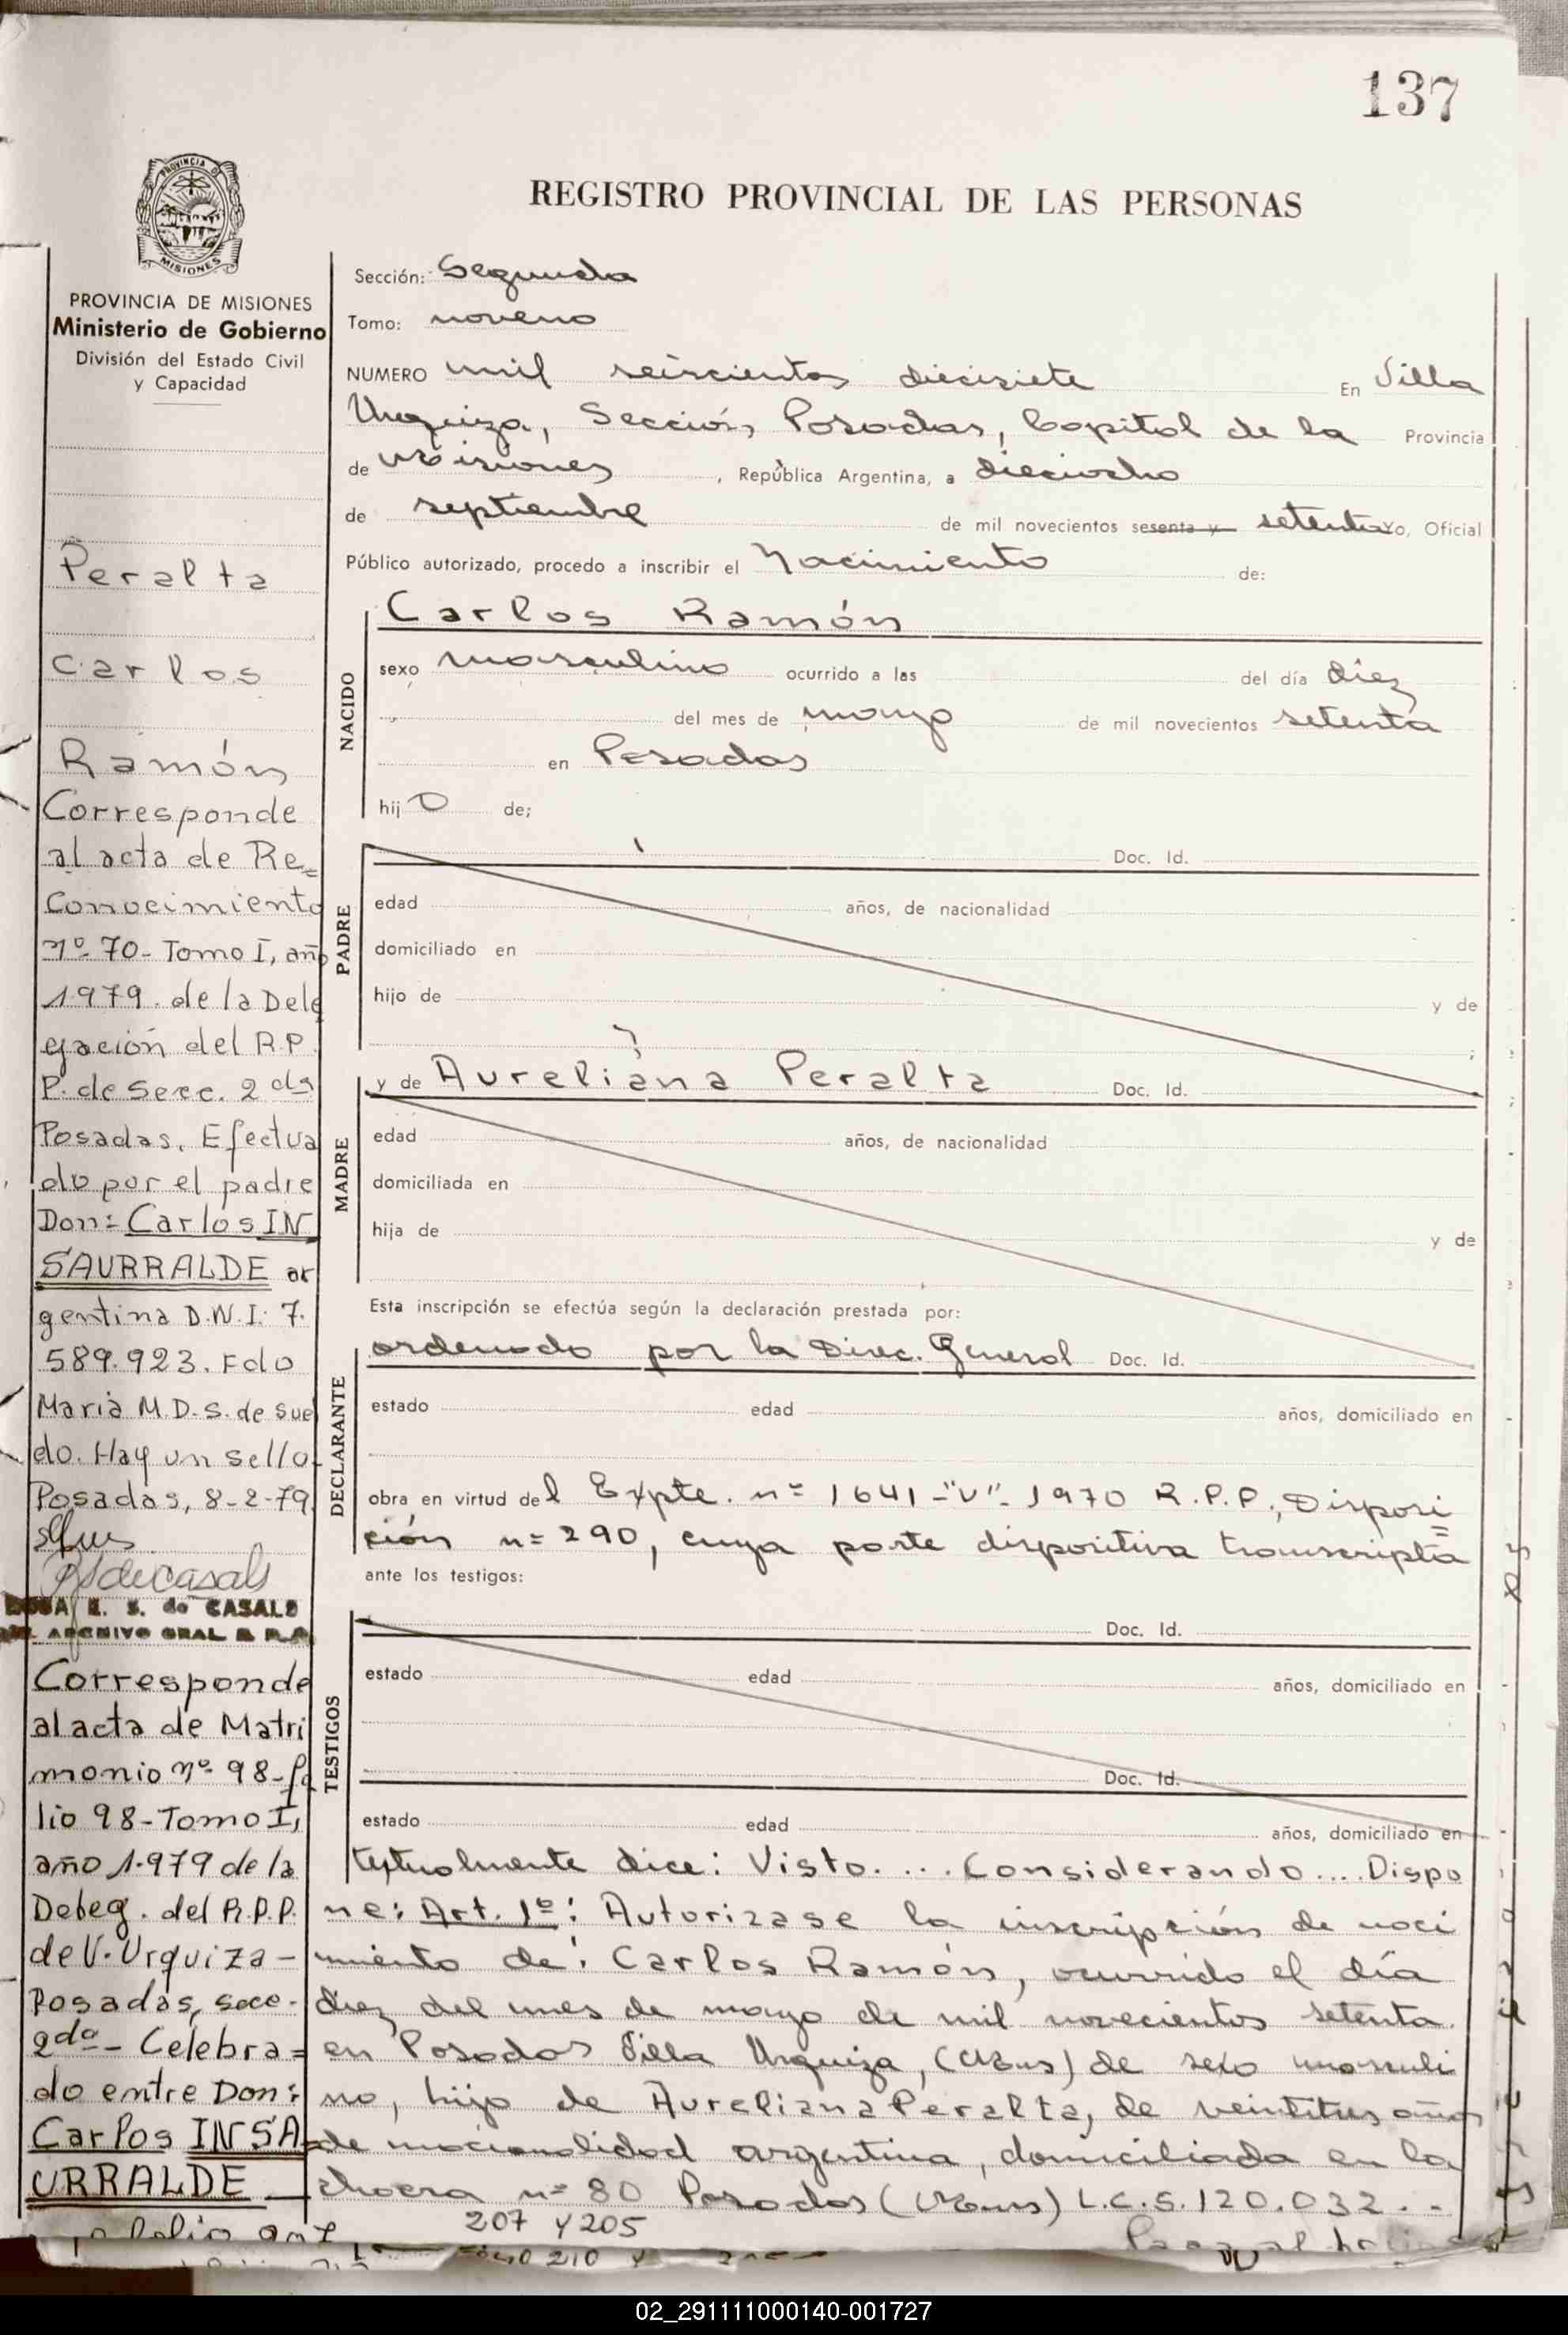 137
PROVINCIA DE
MISIONES
REGISTRO PROVINCIAL DE LAS PERSONAS
PROVINCIA DE MISIONES
Ministerio de Gobierno
División del Estado Civil
y Capacidad
Peralta
Carlos
Ramón
Corresponde
al acta de Re=
Conocimiento
nº 70- Tomo I, año
1979. de la Dele
gación del R.P.
P. de Secc. 2da
Posadas. Efectua
do por el padre
Don: Carlos IN
SAURRALDE ar
gentina D.N.I: 7.
589.923. Fdo
Maria M.D.S. de Sue
do. Hay un sello.
Posadas, 8-2-79.
E. S. de CASALS
ARCHIVO GRAL R P P
Corresponde
al acta de Matri
monio nº 98-fo
lio 98-Tomo I,
año 1.979 de la
Deleg. del R.P.P.
de V. Urquiza-
Posadas, secc.
2da- Celebra=
do entre Don:
Carlos INSA
URRALDE
Sección: Segunda
Tomo: noveno
NUMERO mil seiscientos diecisiete En Villa
Urquiza, Sección, Posadas, Capital de la Provincia
de Misiones, República Argentina, a dieciocho
de septiembre de mil novecientos sesenta y setenta Yo, Oficial
Público autorizado, procedo a inscribir el Nacimiento de:
NACIDO
Carlos Ramón
sexo masculino ocurrido a las del día diez
del mes de mayo de mil novecientos setenta
en Posadas
hijo de;
PADRE
Doc. Id.
edad años, de nacionalidad
domiciliado en
hijo de y de
MADRE
y de Aureliana Peralta Doc. Id.
edad años, de nacionalidad
domiciliada en
hija de y de
Esta inscripción se efectúa según la declaración prestada por:
DECLARANTE
ordenado por la Direc. General Doc. Id.
estado edad años, domiciliado en
obra en virtud del Expte. nº 1641-"V"-1970 R.P.P., Disposi
ción nº 290, cuya parte dispositiva transcripta
ante los testigos:
TESTIGOS
Doc. Id.
estado edad años, domiciliado en
Doc. Id.
estado edad años, domiciliado en
textualmente dice: Visto.... Considerando.... Dispo
ne: Art. 1º: Autorizase la inscripción de naci
miento de: Carlos Ramón, ocurrido el día
diez del mes de mayo de mil novecientos setenta.
en Posadas Villa Urquiza, (Mnes) de sexo masculi
no, hijo de Aureliana Peralta, de veintitres años
de nacionalidad argentina, domiciliada en la
chacra nº 80 Posadas (Mnes) L.C.5.120.032.-
207 y 205
02_291111000140-001727